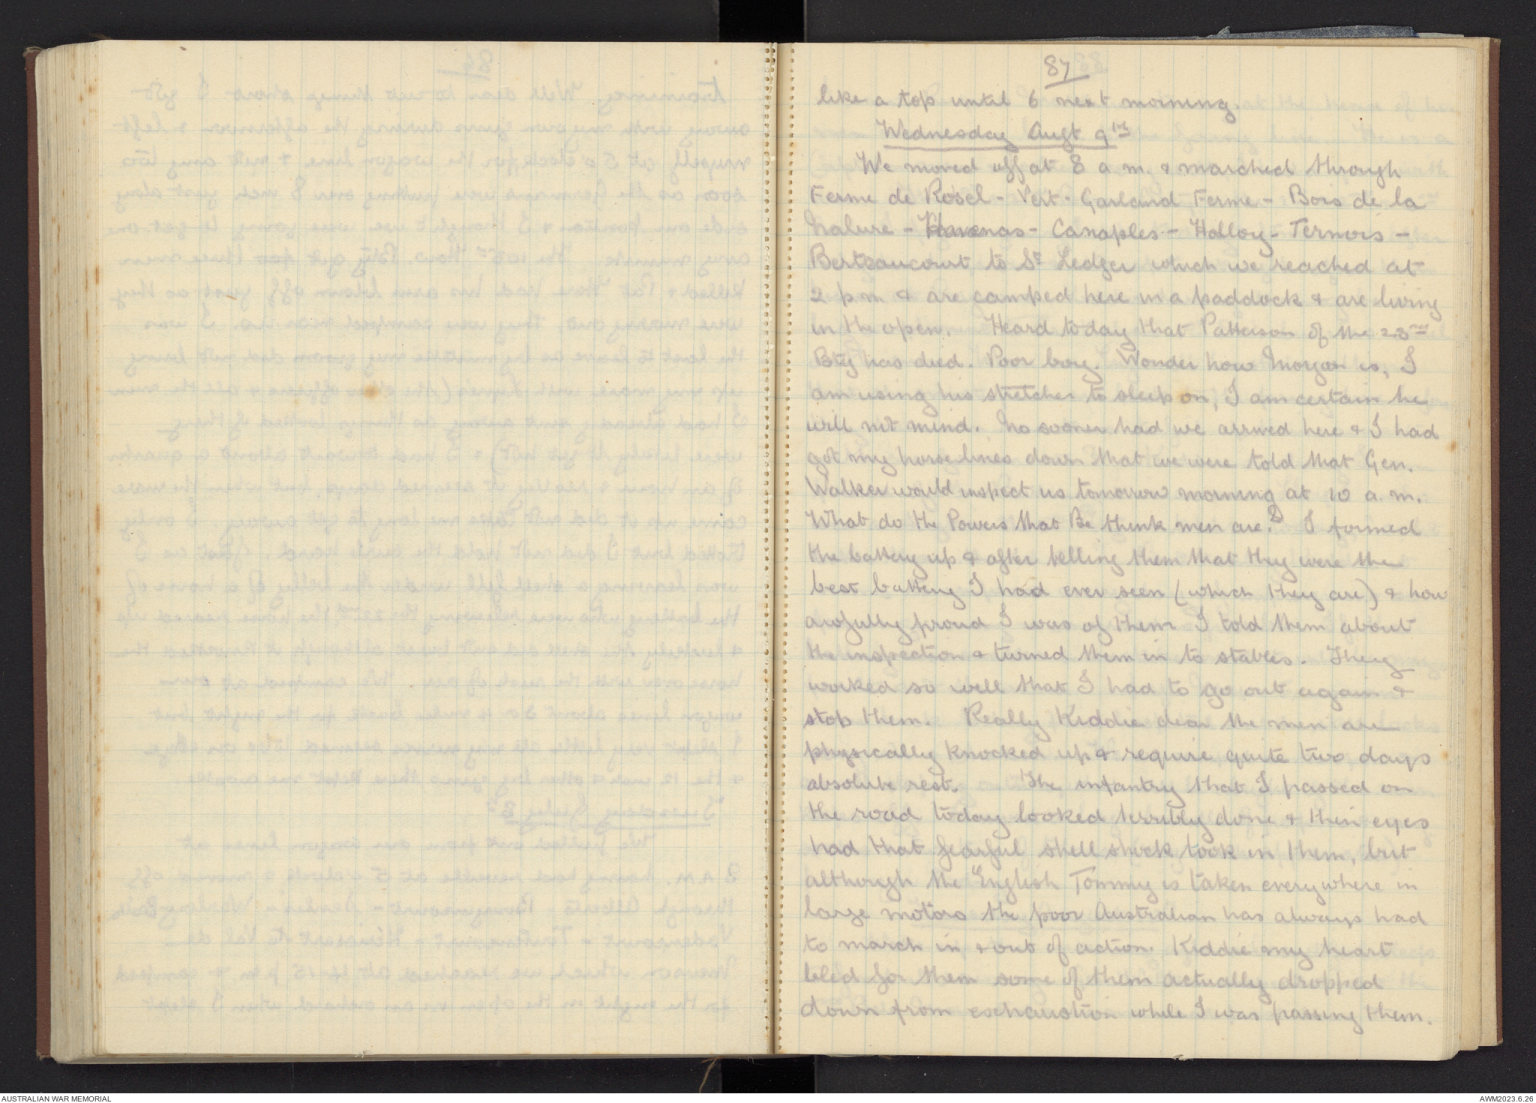 87
like a top until 6 next morning.
Wednesday Augt 9th
We moved off at 8 a m. & marched through
Ferme de Rosel - Vert - Garland Ferme - Bois de la
Nalure - Havenas - Canaples - Halloy - Ternois -
Berteaucourt to St Ledger which we reached at
2 p m & are camped here in a paddock & are living
in the open. Heard today that Patterson of the 23rd
Bty has died. Poor boy. Wonder how Morgan is, I
am using his stretcher to sleep on, I am certain he
will not mind. No sooner had we arrived here & I had
got my horse lines down that we were told that Gen.
Walker would inspect us tomorrow morning at 10 a. m.
What do the Powers that Be think men are? I formed
the battery up & after telling them that they were the
best battery I had ever seen (which they are) & how
awfully proud I was of them I told them about
the inspection & turned them in to stables. They
worked so well that I had to go out again &
stop them. Really Kiddie dear the men are
physically knocked up & require quite two days
absolute rest. The infantry that I passed on
the road today looked terribly done & their eyes
had that fearful shell shock look in them, but
although the English Tommy is taken everywhere in
large motors the poor Australian has always had
to march in & out of action. Kiddie my heart
bled for them some of them actually dropped
down from exhaustion while I was passing them.
AUSTRALIAN WAR MEMORIAL
AWM2023.6.26